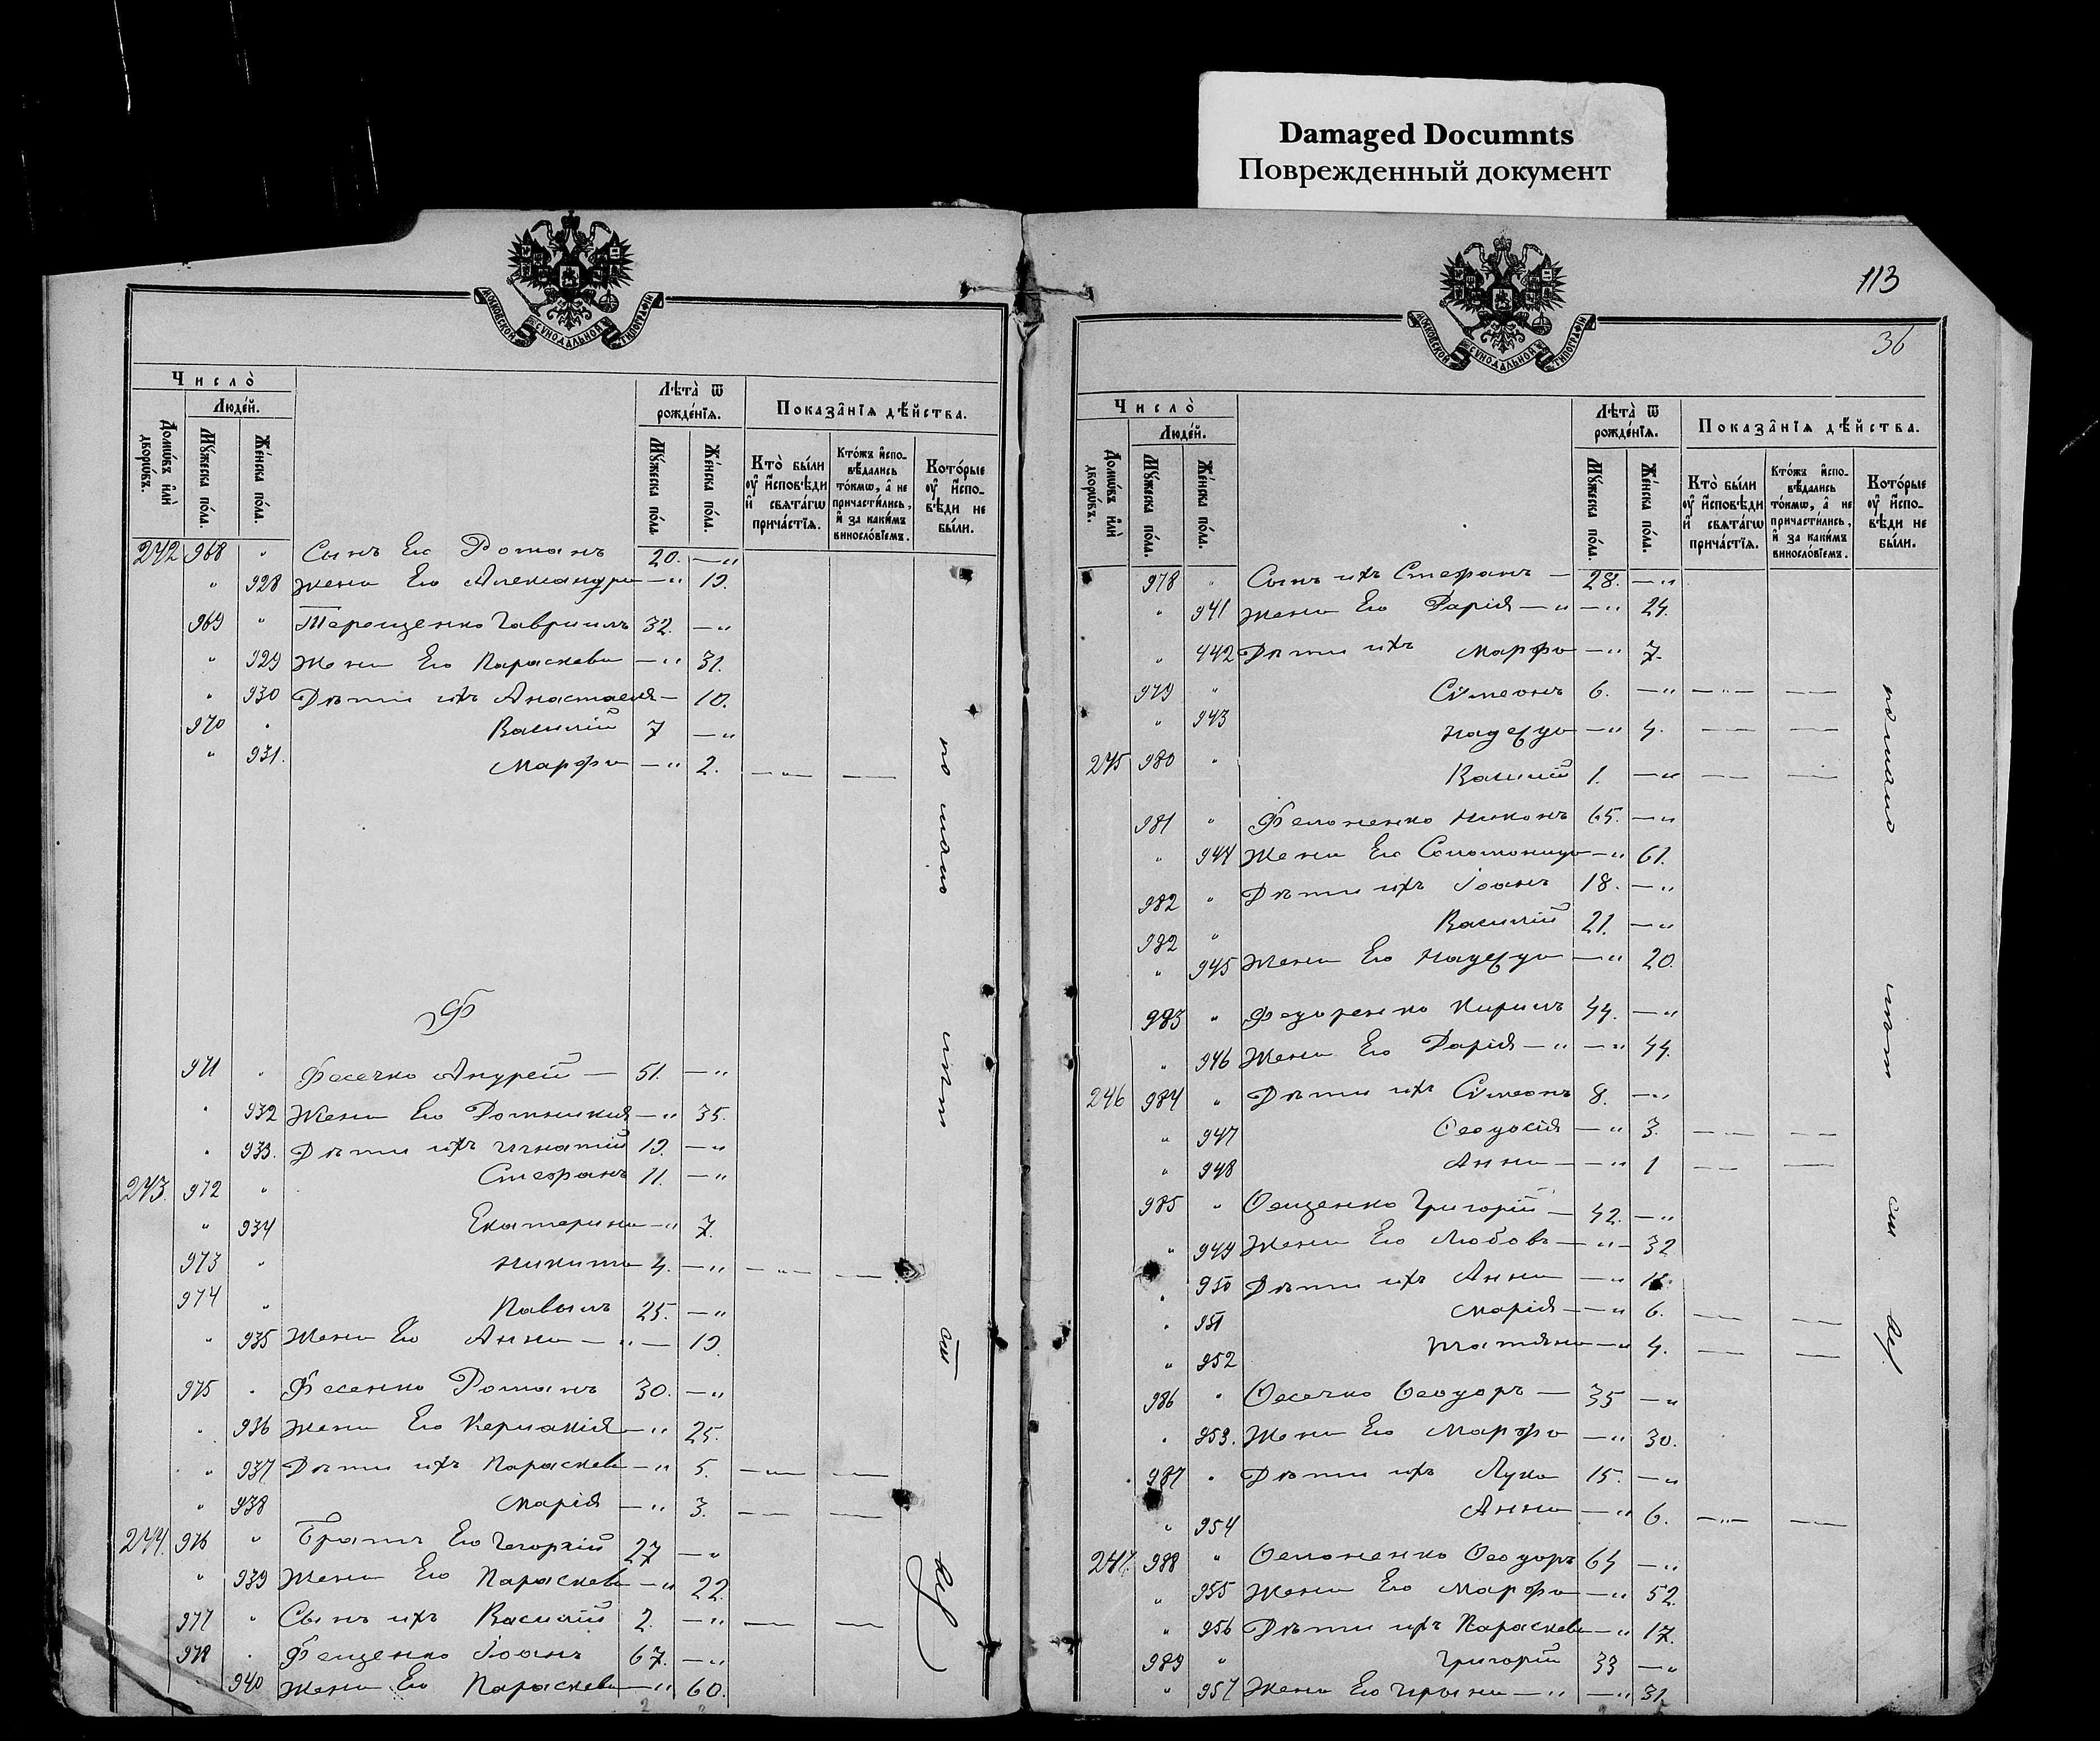 Damaged Documnts
Поврежденный документ
МОСКОВСКОЙ СУНОДАЛЬНОЙ ТИПОГРАФІИ
Число̀
Люде́й.
Домѡ́въ и҆лѝ дворѡ́въ.
Мꙋ́жеска по́ла.
Же́нска по́ла.
Лѣта̀ ѿ рожде́нїѧ.
Мꙋ́жеска по́ла.
Же́нска по́ла.
Показа̂нїѧ дѣ́йства.
Кто̀ бы́ли ᲂу҆ и҆сповѣ́ди и҆ свѧта́гѡ прича́стїѧ.
Кто́жъ и҆спо- вѣ́дались то́кмѡ, а҆ не причасти́лись, и҆ за каки́мъ винослᲂ́вїемъ.
Кото́рые ᲂу҆ и҆спо- вѣ́ди не бы́ли.
242 968 " Сынъ Его Романъ 20. — "
" 928 жена Его Александра — " 19.
969 " Терещенко Гавриилъ 32. — "
" 929 Жена Его Параскева — " 31.
" 930 Дѣти ихъ Анастасія — 10.
970 " Василій 7 — "
" 931. Марфа — " 2. — " — —
Ф
971 " Фесечко Андрей — 51. — "
" 932 Жена Его Домникия — " 35.
" 933. Дѣти ихъ Игнатій 19. — "
243. 972 " Стефанъ 11. — "
" 934 Екатерина — " 7.
973 " Никита 4. — " — " — —
974 " Павелъ 25. — "
" 935 Жена Его Анна — " — 19.
975 " Фесенко Романъ 30. — "
" 936 Жена Его — " 25.
" 937 Дѣти ихъ Параскева — " 5. — " — —
" 938 Марія — " 3. — —
244. 976 " Братъ Его Георгій 27 — "
" 939 Жена Его Параскева — " 22.
977 " Сынъ ихъ Василій 2. — " — —
978 " Фещенко Іоанъ 67. — "
940 Жена Его Параскева — " 60.
113
36
МОСКОВСКОЙ СУНОДАЛЬНОЙ ТИПОГРАФІИ
Число̀
Люде́й.
Домѡ́въ и҆лѝ дворѡ́въ.
Мꙋ́жеска по́ла.
Же́нска по́ла.
Лѣта̀ ѿ рожде́нїѧ.
Мꙋ́жеска по́ла.
Же́нска по́ла.
Показа̂нїѧ дѣ́йства.
Кто̀ бы́ли ᲂу҆ и҆сповѣ́ди и҆ свѧта́гѡ прича́стїѧ.
Кто́жъ и҆спо- вѣ́дались то́кмѡ, а҆ не причасти́лись, и҆ за каки́мъ винослᲂ́вїемъ.
Кото́рые ᲂу҆ и҆спо- вѣ́ди не бы́ли.
978 " Сынъ ихъ Стефанъ — 28. — "
" 941 Жена Его Дарія — " — " 24.
" 442 Дѣти ихъ Марфа — " 7.
979 " Сѵмеонъ 6. — " — " — —
" 943 Надежда — " 4. — —
245 980 " Василій 1. — " — —
981 " Фелоненко Никонъ 65. — "
" 944 Жена Его Соломонида — " 61.
982 " Дѣти ихъ Іоанъ 18. — "
982 " Василій 21. — "
" 945 Жена Его Надежда — " 20.
983 " Федоренко Кирилъ 44. — "
" 946 Жена Его Дарія — " — " 44.
246 984 " Дѣти ихъ Сѵмеонъ 8. — "
" 947 Ѳеодосія — " 3. — —
" 948 Анна — — " 1 — —
985 " Ѳещенко Григорій — 42. — "
" 949 Жена Его Любовь — " — 32
" 950 Дѣти ихъ Анна — "
" 951 Марія — " 6. — —
" 952 Татіяна — " 4. — —
986 " Ѳесечко Ѳеодоръ — 35 — "
" 953. Жена Его Марфа — " 30.
987 " Дѣти ихъ Лука 15. — "
" 954 Анна — " 6. — " — —
247. 988 " Ѳелоненко Ѳеодоръ 64 — "
" 955 Жена Его Марфа — " 52.
" 956 Дѣти ихъ Параскева — " 17.
989 " Григорій 33 — "
" 957 Жена Его Ирина — " — " 31.